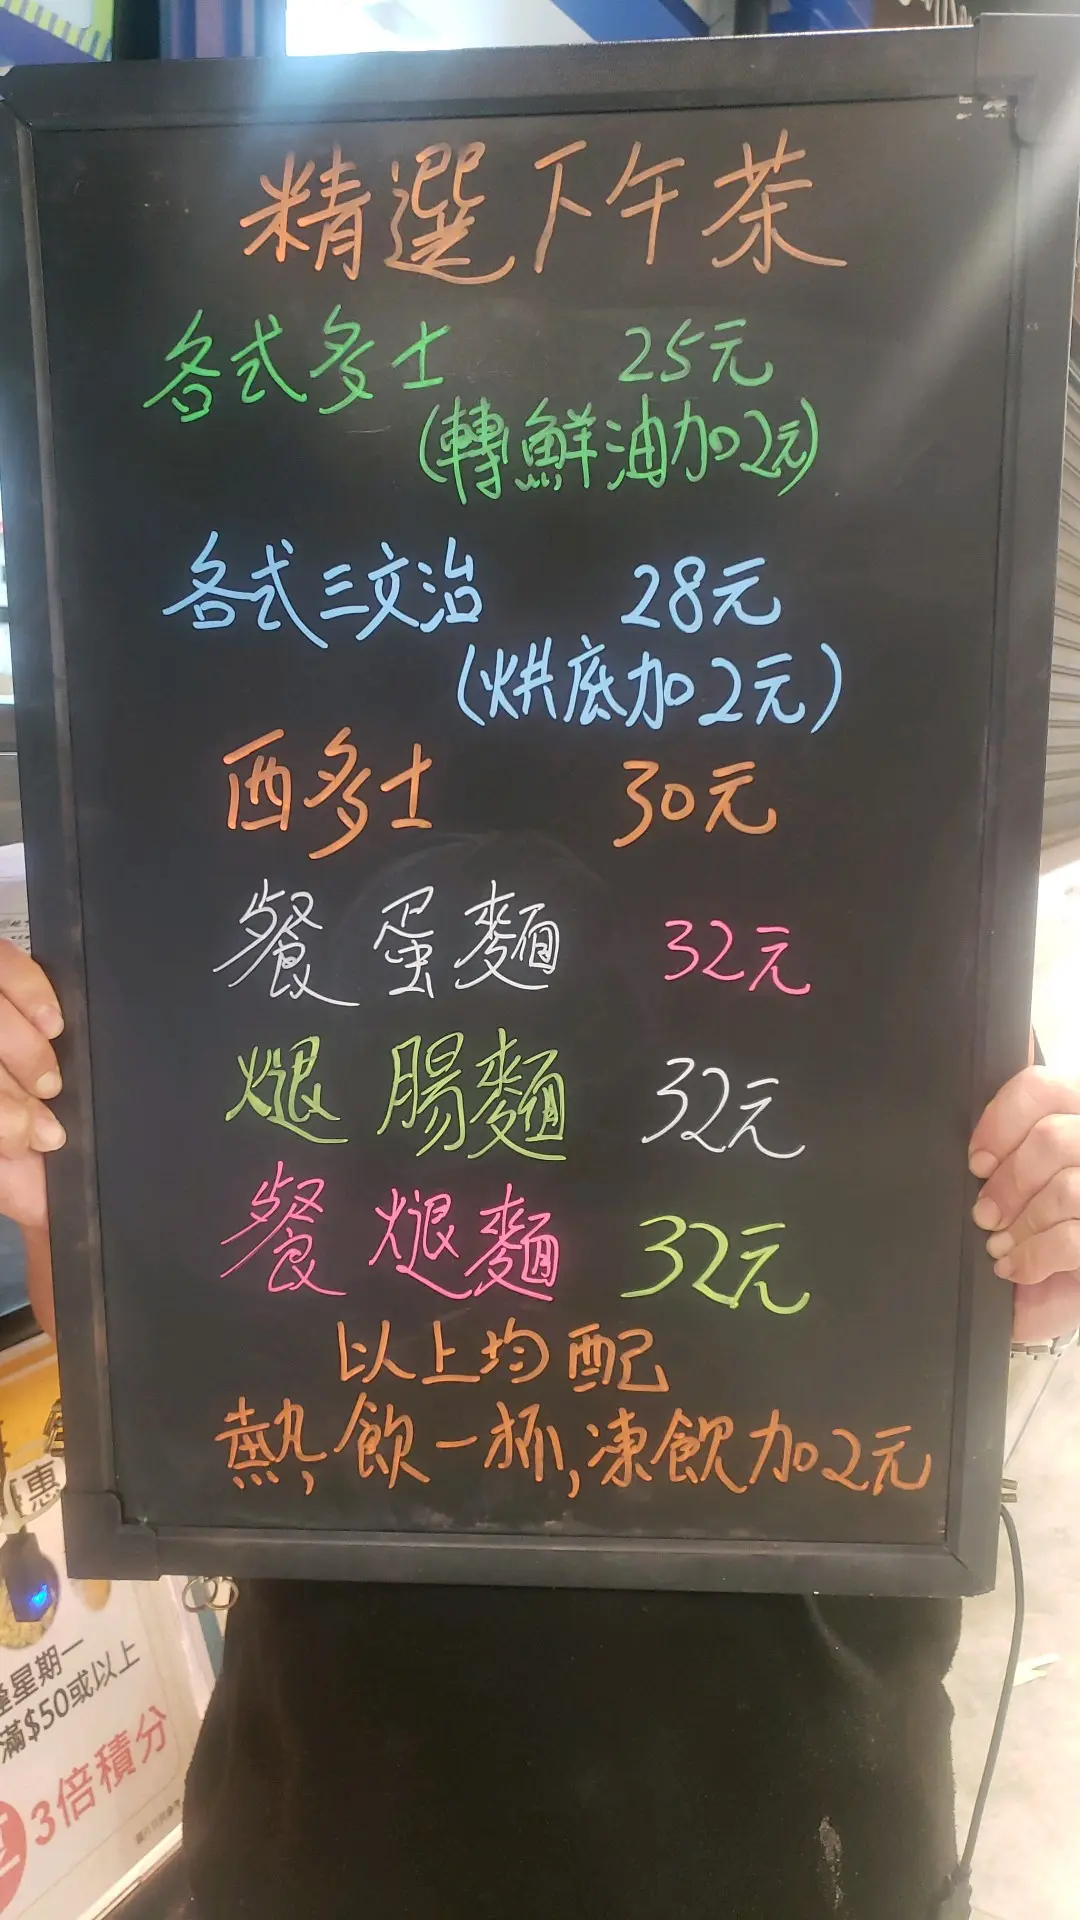 精選下午茶
各式多士 25元
(轉鮮油加2元)
各式三文治 28元
(烘底加2元)
西多士 30元
餐蛋麵 32元
腿腸麵 32元
餐腿麵 32元
以上均配
熱飲一杯,凍飲加2元
惠
逢星期一
滿$50或以上
3倍積分